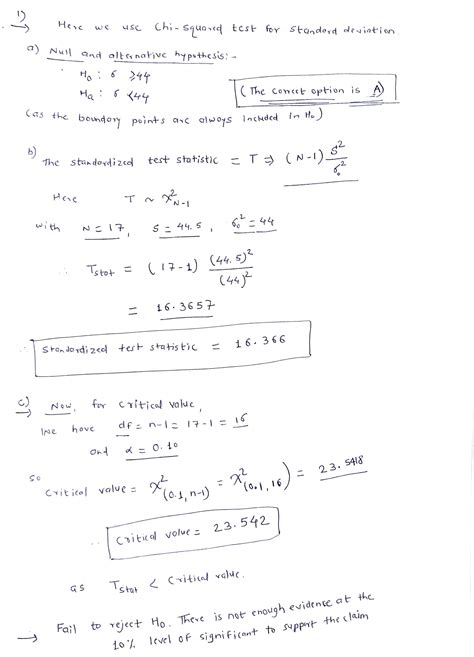 1)
Here we use Chi-squared test for standard deviation
a) Null and alternative hypothesis:-
H₀ : σ ≥44
Hₐ : σ <44
(The correct option is A)
(as the boundary points are always included in H₀)
b) The standardized test statistic = T ⇒ (N-1) S²/σ₀²
Here T ~ χ²_{N-1}
with N = 17, S = 44.5, σ₀² = 44
∴ T_stat = (17-1) (44.5)²/(44)²
= 16.3657
∴ Standardized test statistic = 16.366
c) Now, for critical value,
We have df = n-1 = 17-1 = 16
and α = 0.10
so
Critical value = χ²_{(0.1, n-1)} = χ²_{(0.1, 16)} = 23.5418
∴ Critical value = 23.542
as T_stat < Critical value.
→ Fail to reject H₀. There is not enough evidence at the
10% level of significant to support the claim